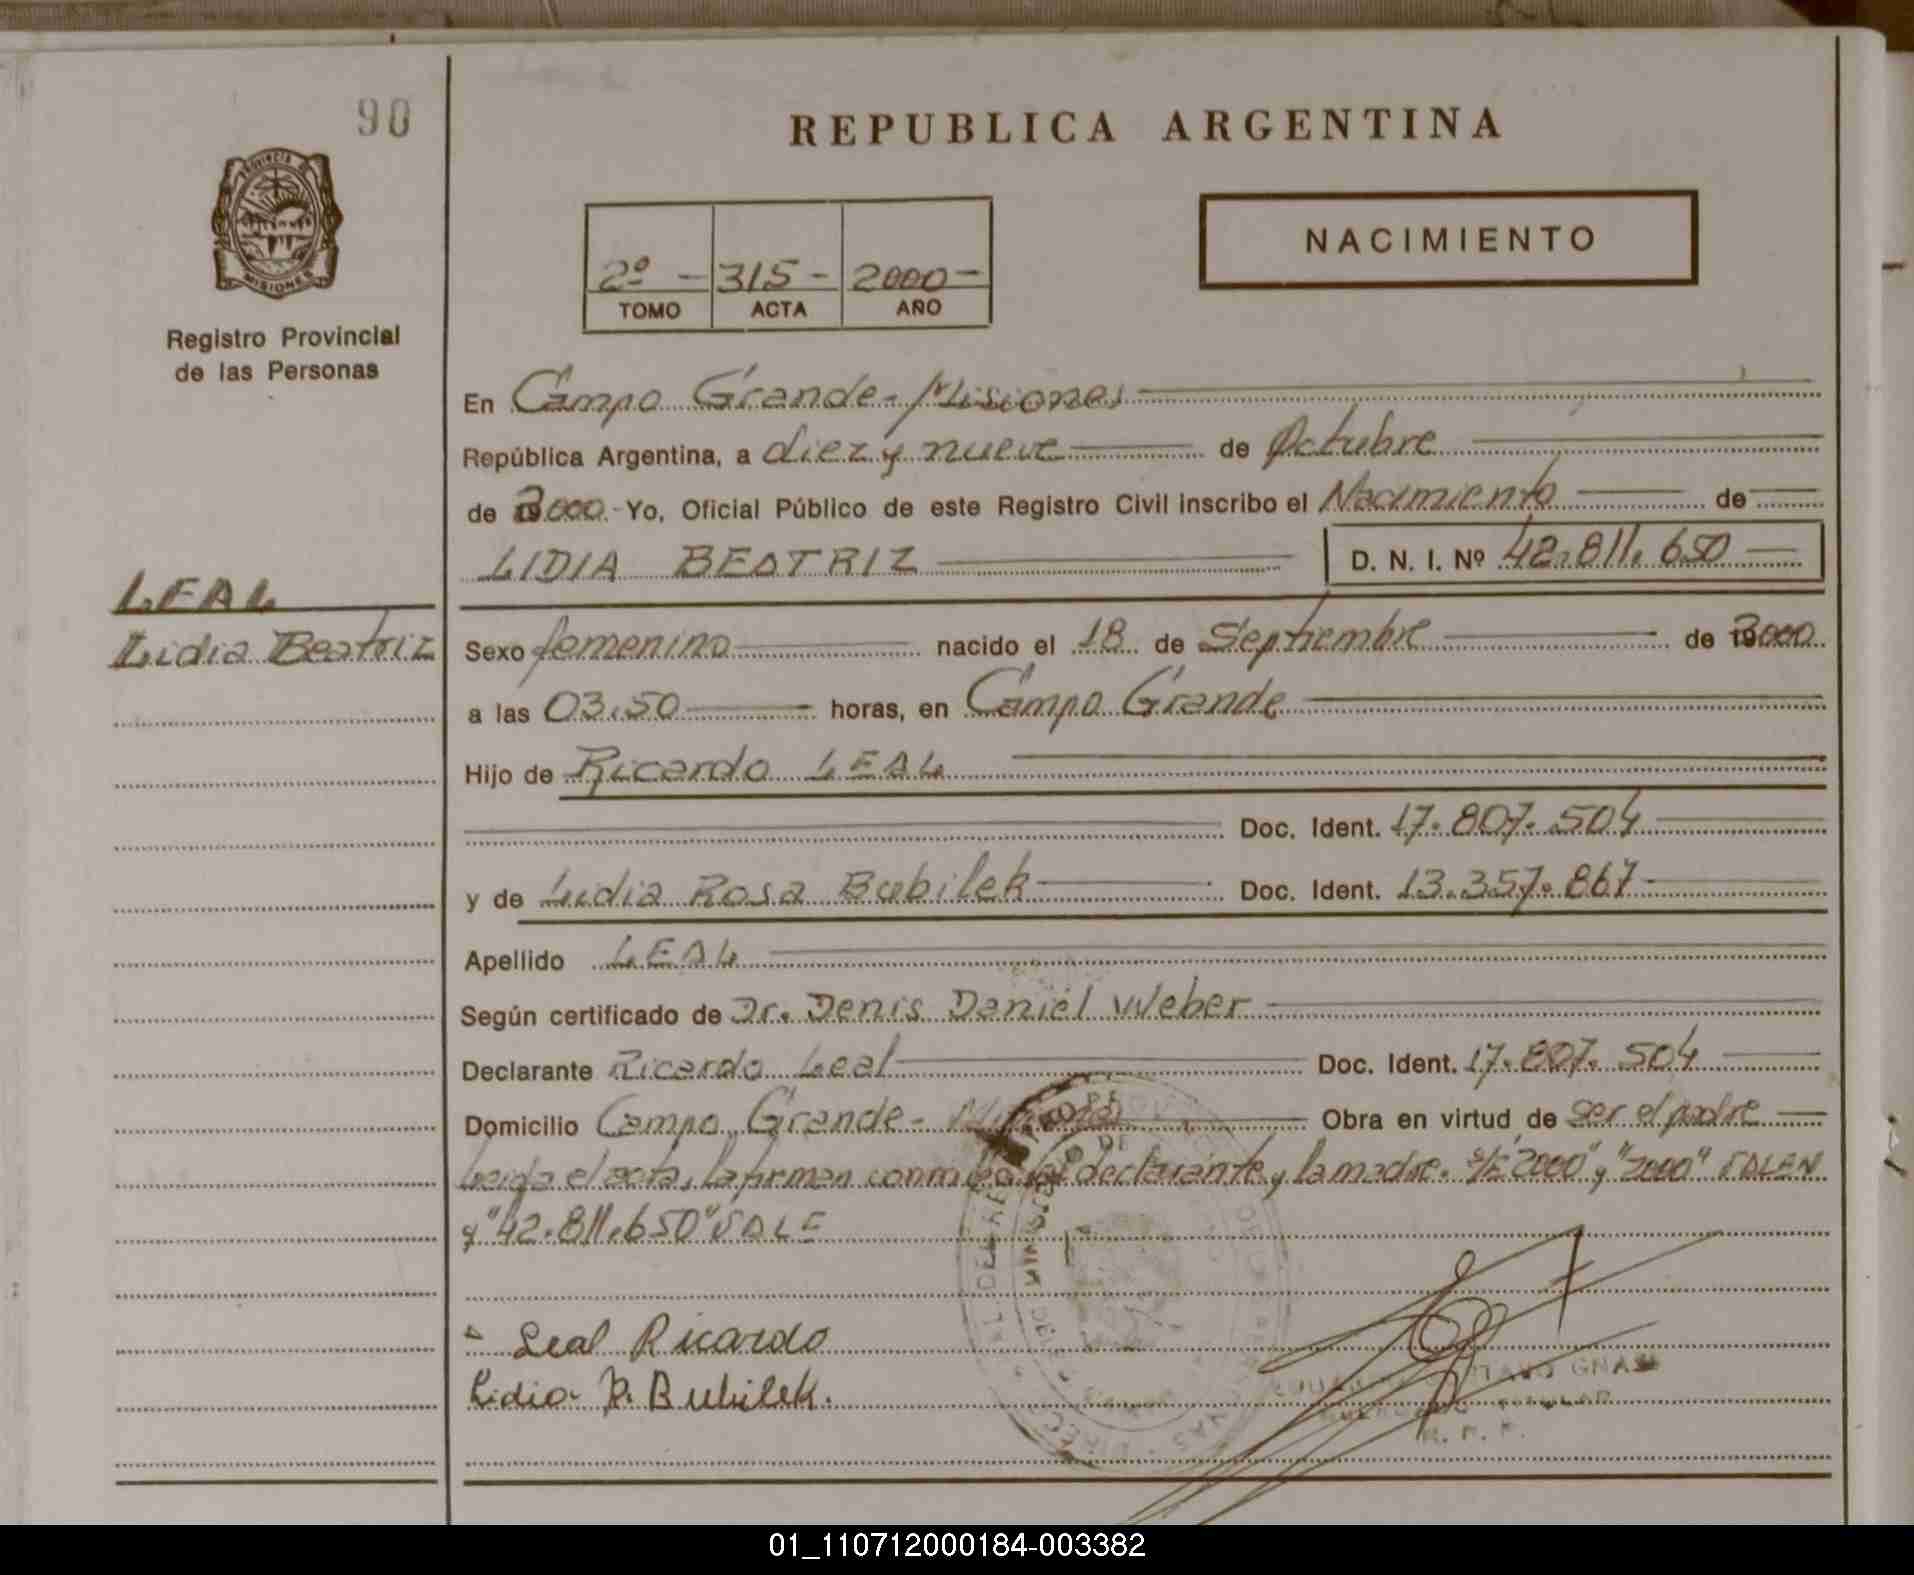 90
REPUBLICA ARGENTINA
PROVINCIA DE
MISIONES
Registro Provincial
de las Personas
2º - 315 - 2000 -
TOMO ACTA AÑO
NACIMIENTO
En Campo Grande - Misiones
República Argentina, a diez y nueve de Octubre
de 2000 - Yo, Oficial Público de este Registro Civil inscribo el Nacimiento de
LIDIA BEATRIZ D. N. I. Nº 42.811.650
LEAL
Lidia Beatriz
Sexo femenino nacido el 18 de Septiembre de 2000
a las 03.50 horas, en Campo Grande
Hijo de Ricardo LEAL
Doc. Ident. 17.807.504
y de Lidia Rosa Bubilek Doc. Ident. 13.357.867
Apellido LEAL
Según certificado de Dr. Denis Daniel Weber
Declarante Ricardo Leal Doc. Ident. 17.807.504
Domicilio Campo Grande - Misiones Obra en virtud de ser el padre
Leida el acta, la firman conmigo el declarante y la madre. s/E "2000" y "2000" VALEN
y "42.811.650" VALE
Leal Ricardo
Lidia R. Bubilek.
TITULAR
R. P. P.
01_110712000184-003382